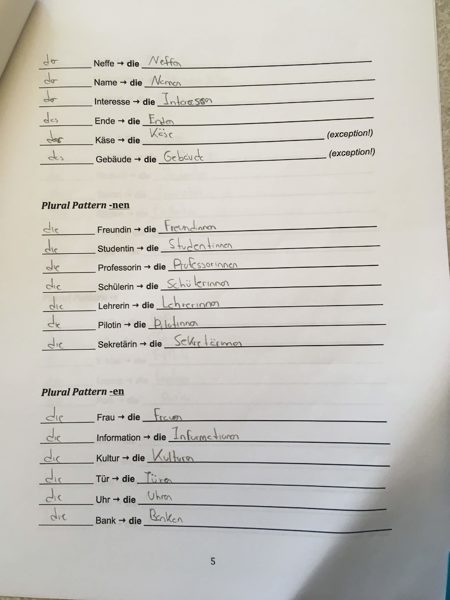 der Neffe → die Neffen
der Name → die Namen
der Interesse → die Interessen
das Ende → die Enden
der Käse → die Käse (exception!)
das Gebäude → die Gebäude (exception!)
Plural Pattern -nen
die Freundin → die Freundinnen
die Studentin → die Studentinnen
die Professorin → die Professorinnen
die Schülerin → die Schülerinnen
die Lehrerin → die Lehrerinnen
die Pilotin → die Pilotinnen
die Sekretärin → die Sekretärinnen
Plural Pattern -en
die Frau → die Frauen
die Information → die Informationen
die Kultur → die Kulturen
die Tür → die Türen
die Uhr → die Uhren
die Bank → die Banken
5